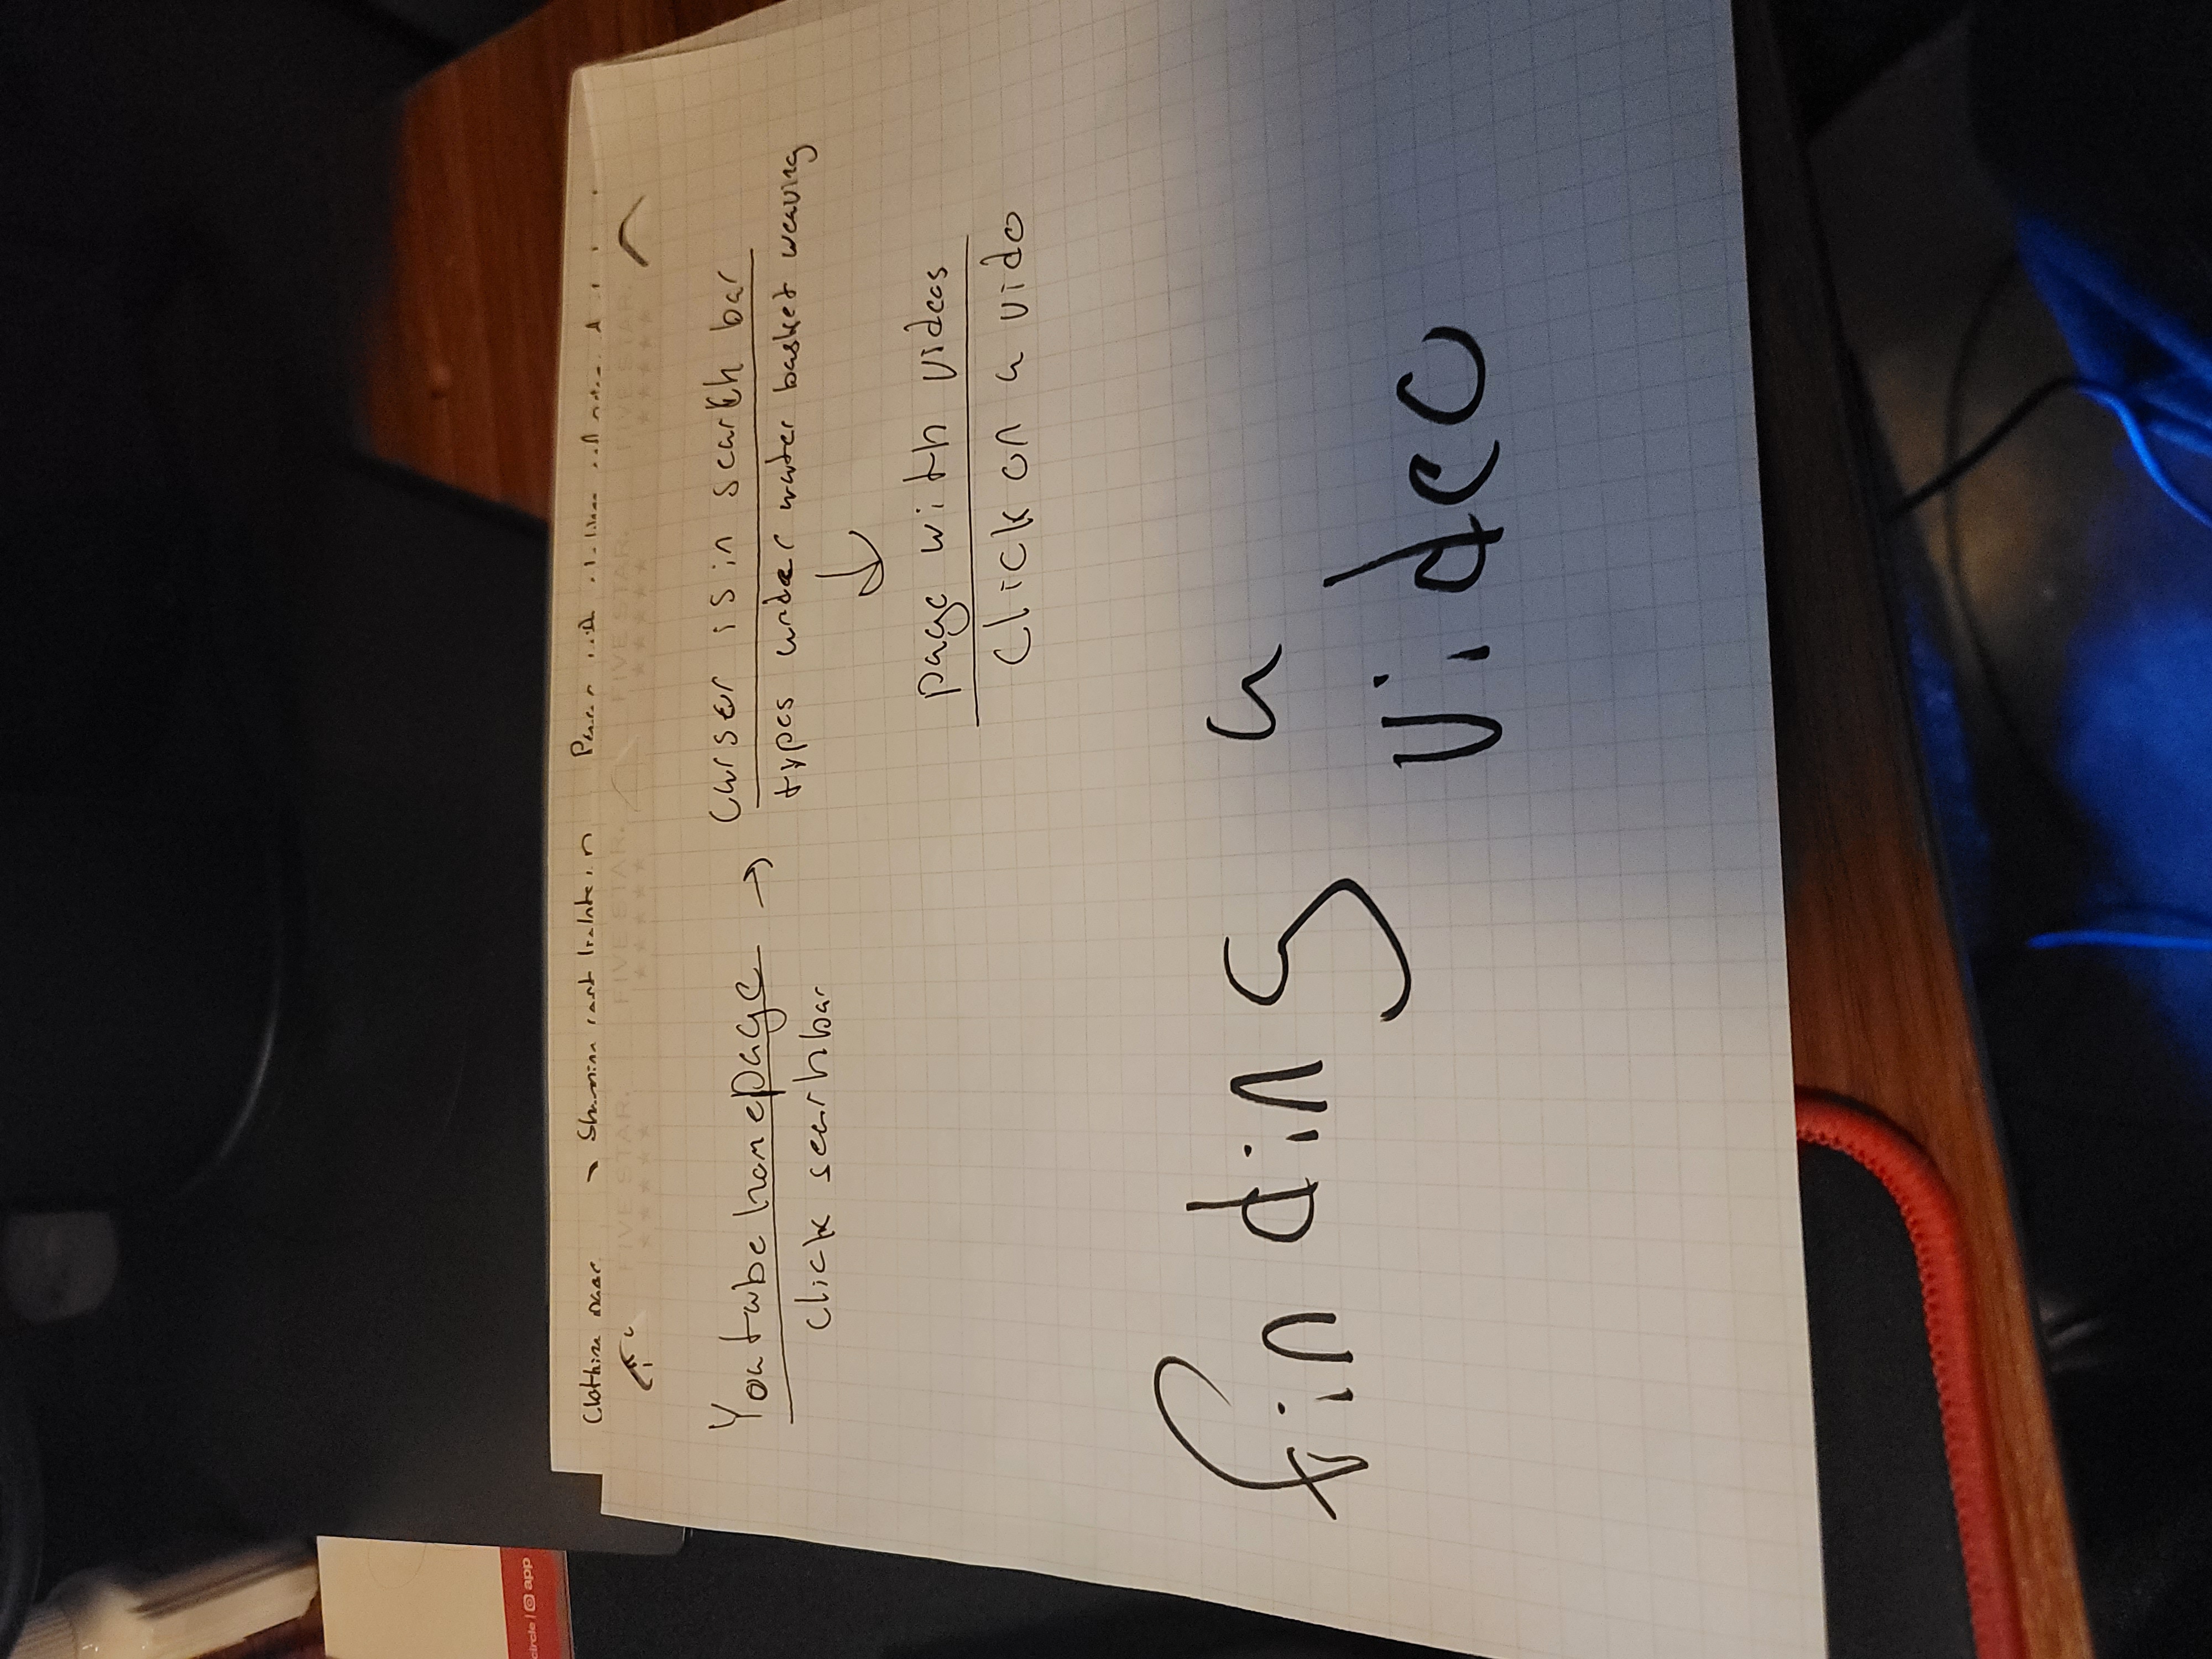 circle | app
Clothing page
FIVE STAR. FIVE STAR. FIVE STAR. FIVE STAR.
Youtube homepage → curser is in search bar
click searhbar
types under water basket weaving
page with videos
Click on a vido
finding a
video